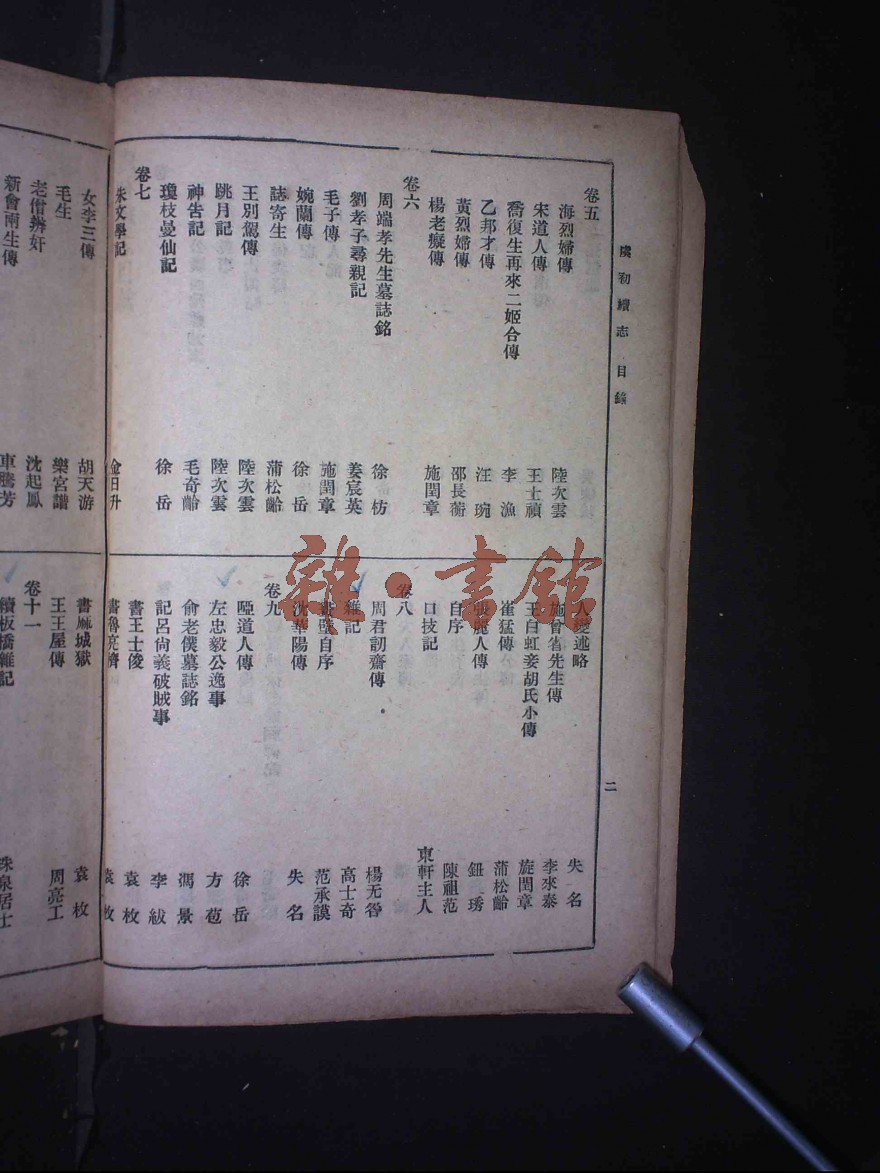 虞初續志 目錄
二
卷五
海烈婦傳 陸次雲
宋道人傳 王士禛
喬復生再來二姬合傳 李漁
乙邦才傳 汪琬
黃烈婦傳 邵長蘅
楊老癡傳 施閏章
卷六
周端孝先生墓誌銘 徐枋
劉孝子尋親記 姜宸英
毛子傳 施閏章
婉蘭傳 徐岳
誌寄生 蒲松齡
王別駕傳 陸次雲
跳月記 陸次雲
神告記 毛奇齡
瓊枝曼仙記 徐岳
卷七
朱文學記 金日升
女李三傳 胡天游
毛生 樂宮譜
老僧辨奸 沈起鳳
新會兩生傳 車騰芳
人變述略 失名
施曾省先生傳 李來泰
王白虹妾胡氏小傳 旋閏章
崔猛傳 蒲松齡
張麗人傳 鈕琇
自序 陳祖范
口技記 東軒主人
卷八
周君韌齋傳 楊无咎
雜記 高士奇
畫壁自序 范承謨
沈華陽傳 失名
卷九
啞道人傳 徐岳
左忠毅公逸事 方苞
俞老僕墓誌銘 馮景
記呂尚義破賊事 李紱
書王士俊 袁枚
書魯亮儕 袁枚
書麻城獄 袁枚
王王屋傳 周亮工
卷十一
續板橋雜記 珠泉居士
雜·書館